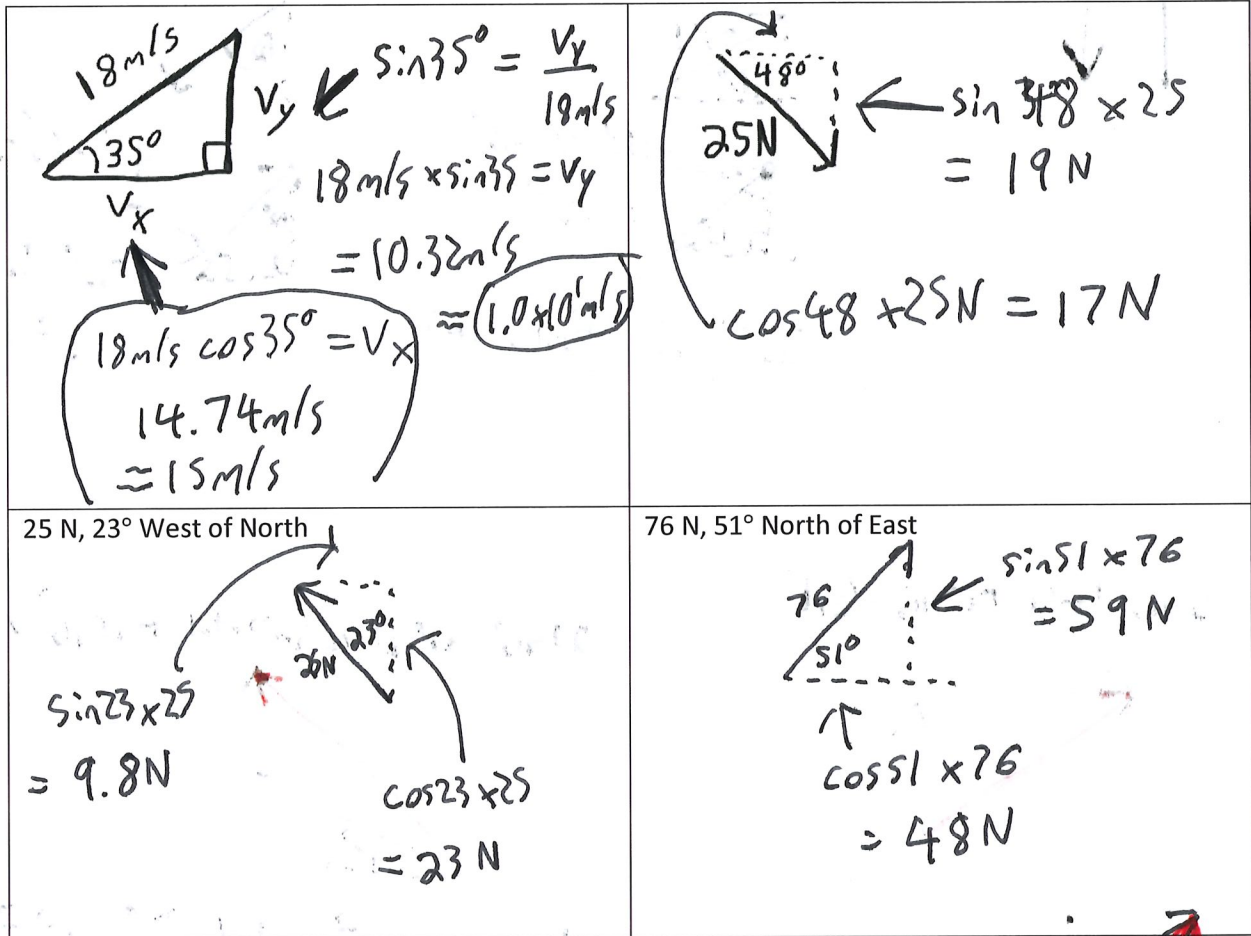 18m/s
35°
Vy
Vx
sin35° = Vy
18m/s
18m/s ×sin35 = Vy
=10.32m/s
≈ 1.0×10¹m/s
18m/s cos35° = Vx
14.74m/s
≈15m/s
48°
25N
× 25
= 19 N
cos48 ×25N = 17N
25 N, 23° West of North
23°
sin23×25
= 9.8N
cos23×25
= 23 N
76 N, 51° North of East
76
51°
sin51×76
=59N
cos51×76
= 48N